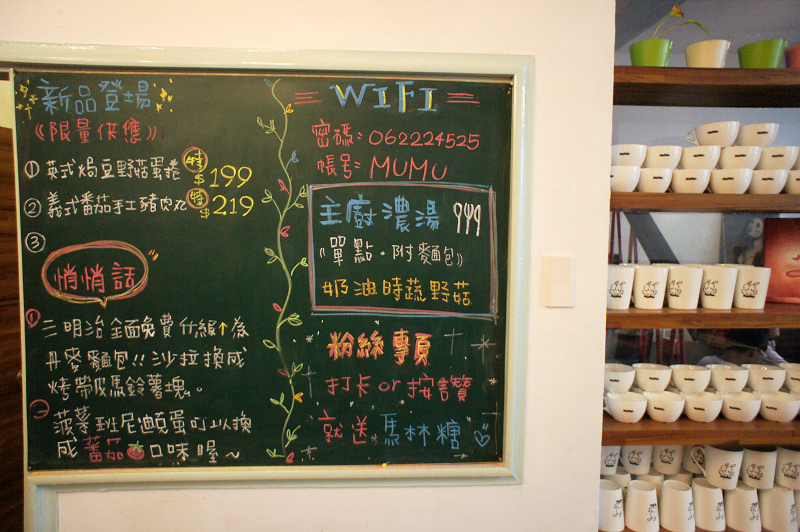 新品登場
《限量供應》
① 英式焗豆野菇蛋捲 特 $199
② 義式番茄手工豬肉丸 特 $219
③
悄悄話
① 三明治全面免費升級↑為
丹麥麵包!!沙拉換成
烤帶皮馬鈴薯塊。
㊀ 菠菜班尼迪頓蛋可以換
成蕃茄口味喔~
WIFI
密碼:062224525
帳号:MUMU
主廚濃湯
《單點·附麵包》
奶油時蔬野菇
粉絲專頁
打卡or按讚
就送馬林糖